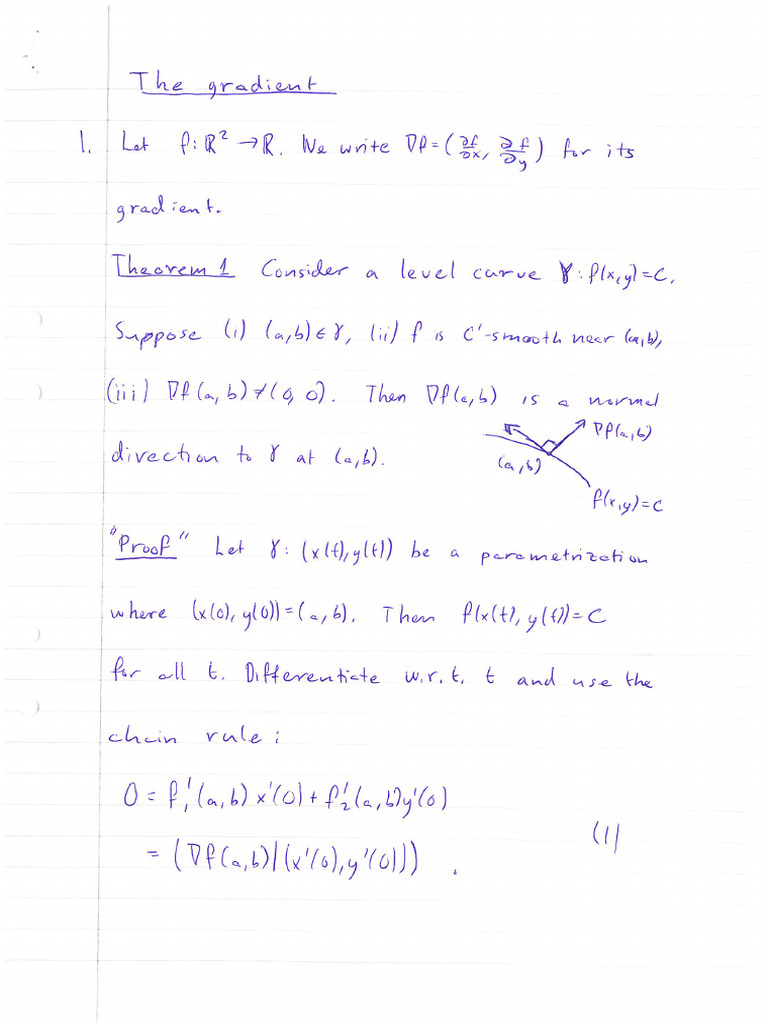 The gradient
1. Let f: ℝ² → ℝ. We write ∇f = (∂f/∂x, ∂f/∂y) for its
gradient.
Theorem 1 Consider a level curve γ: f(x,y)=C.
Suppose (i) (a,b) ∈ γ, (ii) f is C'-smooth near (a,b),
(iii) ∇f(a,b) ≠ (0,0). Then ∇f(a,b) is a normal
direction to γ at (a,b).
∇f(a,b)
(a,b)
f(x,y)=C
"Proof" Let γ: (x(t),y(t)) be a parametrization
where (x(0), y(0)) = (a,b). Then f(x(t), y(t)) = C
for all t. Differentiate w.r.t. t and use the
chain rule:
0 = f₁'(a,b) x'(0) + f₂'(a,b) y'(0)
= (∇f(a,b)|(x'(0), y'(0))). (1)